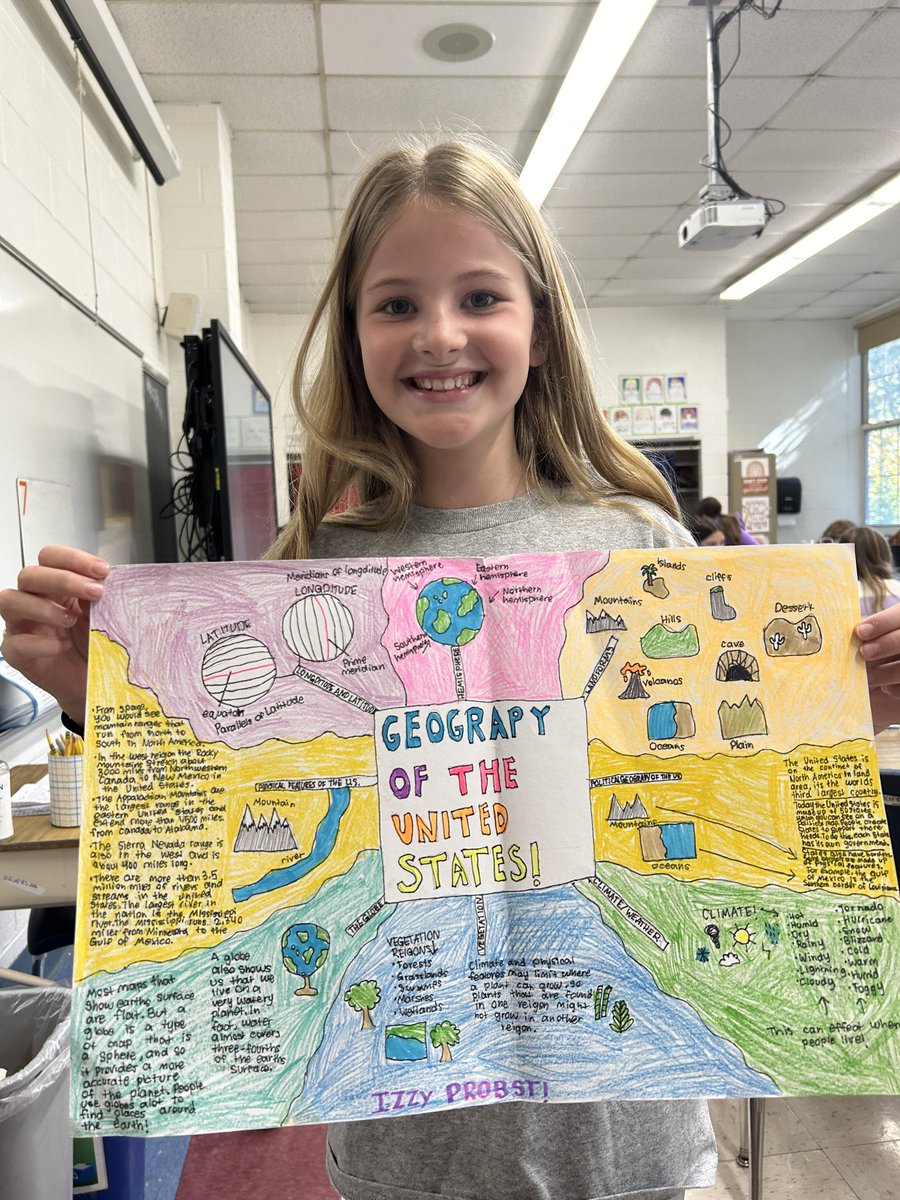 7
Meridians of longditude
LONGDITUDE
LATITUDE
Prime
meridian
LONGDITUDE AND LATITUDE
equator
Parallels of Latitude
Western
hemisphere
Eastern
hemisphere
Northern
hemisphere
Southern
hemisphere
HEMISPHERE
LANDFORMS
Islands
cliffs
Mountains
Hills
Dessert
cave
volcanos
Oceans
Plain
GEOGRAPY
OF THE
UNITED
STATES!
• From space,
you would see
mountain ranges that
run from north to
South in North America.
• In the west reigon the Rocky
Mountains stretch about
3000 miles from Northwestern
Canada, to New Mexico in
the United States.
• The Appalachian Mountains are
the largest range in the
eastern United States and
extend more than 1,500 miles
from canada to Alabama.
• The Sierra Nevada range is
also in the West and is
about 400 miles long.
• There are more than 3.5
million miles of rivers and
streams in the united
States. The largest river in
the nation is the Mississippi
river. the mississippi runs 2,340
miles from Minnesota to the
Gulf of Mexico.
PHYSICAL FEATURES OF THE U.S.
Mountain
river
POLITICAL GEOGRAPHY OF THE US
Mountains
oceans
The United States
is on the continent of
North America to land
area, its the worlds
third largest country.
Today the United States is
made up of 50 states
which you can see on a
has its own government.
States also have borders
of physical features.
For example, the gulf
of Mexico is the
Southern border of Louisiana
THE GLOBE
Most maps that
show earths surface
are flat. But a
globe is a type
of map that is
a sphere, and so
it provides a more
accurate picture
of the planet. People
use globes alot to
find places around
the earth!
A globe
also shows
us that we
live on a
very watery
planet. In
fact, water
almost covers
three-fourths
of the earths
surface.
VEGETATION
VEGETATION
REIGONS
• Forests
• Grasslands
• Swamps
• Marshes
• Wetlands
Climate and physical
features may limit where
a plant can grow, so
plants that are found
in one reigon might
not grow in another
reigon.
CLIMATE/WEATHER!
CLIMATE!
• Hot
• Humid
• Dry
• Rainy
• Windy
• Lightning
• Cloudy
• Tornado
• Hurricane
• Snow
• Blizzard
• Cold
• Warm
• Humid
• Foggy
This can affect where
people live!
IZZY PROBST!